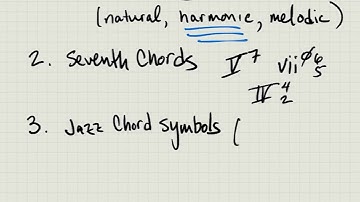 (natural, harmonic, melodic)
2. Seventh Chords V⁷ viiø⁶₅
IV⁴₂
3. Jazz Chord Symbols (